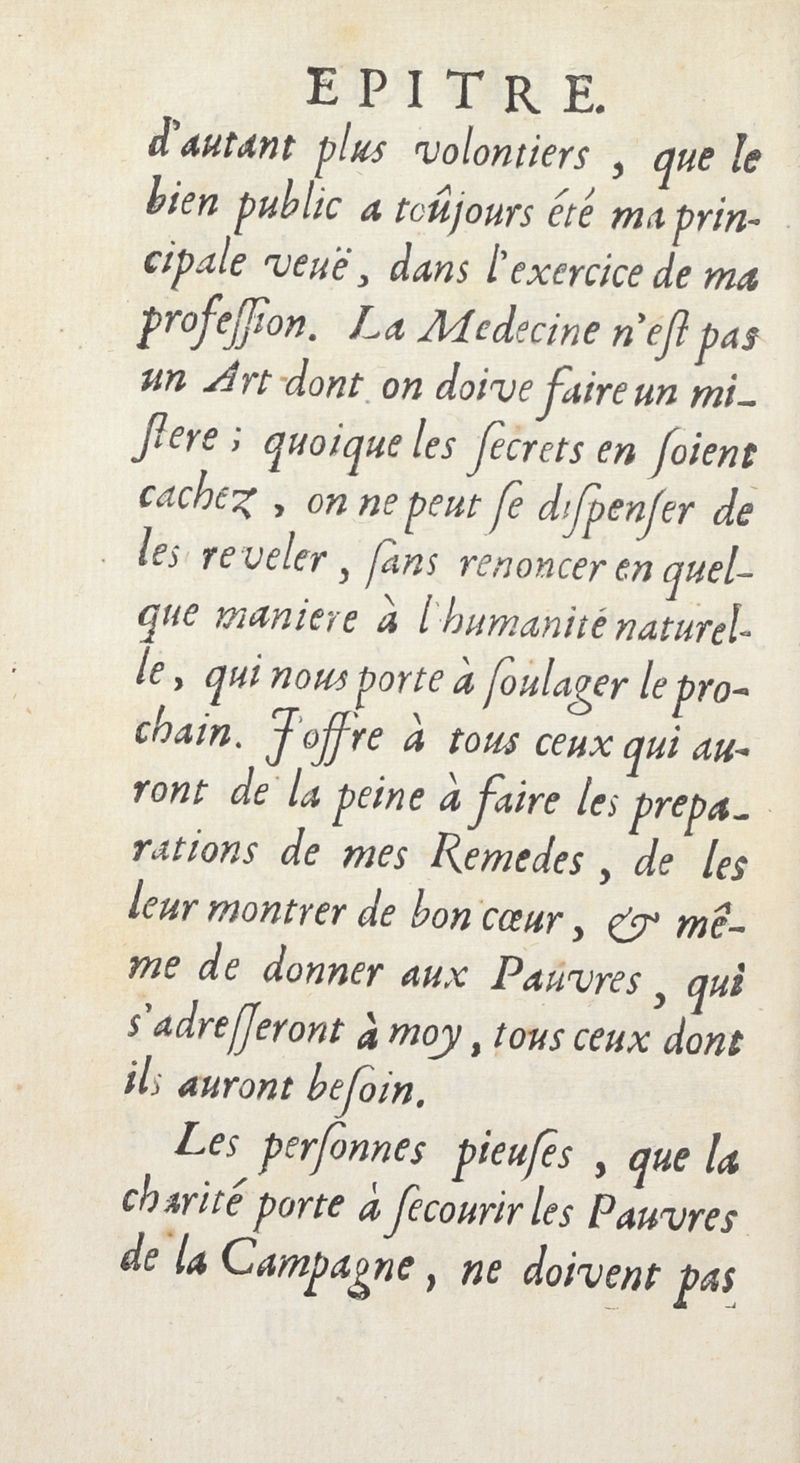 EPITRE.
d'autant plus volontiers , que le
bien public a toûjours été ma prin-
cipale veuë, dans l'exercice de ma
profeſſion. La Medecine n'eſt pas
un Art dont on doive faire un mi-
ſtere ; quoique les ſecrets en ſoient
cachez , on ne peut ſe diſpenſer de
les reveler , ſans renoncer en quel-
que maniere à l'humanité naturel-
le, qui nous porte à ſoulager le pro-
chain. J'offre à tous ceux qui au-
ront de la peine à faire les prepa-
rations de mes Remedes , de les
leur montrer de bon cœur , & mê-
me de donner aux Pauvres , qui
s'adreſſeront à moy , tous ceux dont
ils auront beſoin.
Les perſonnes pieuſes , que la
charité porte à ſecourir les Pauvres
de la Campagne , ne doivent pas